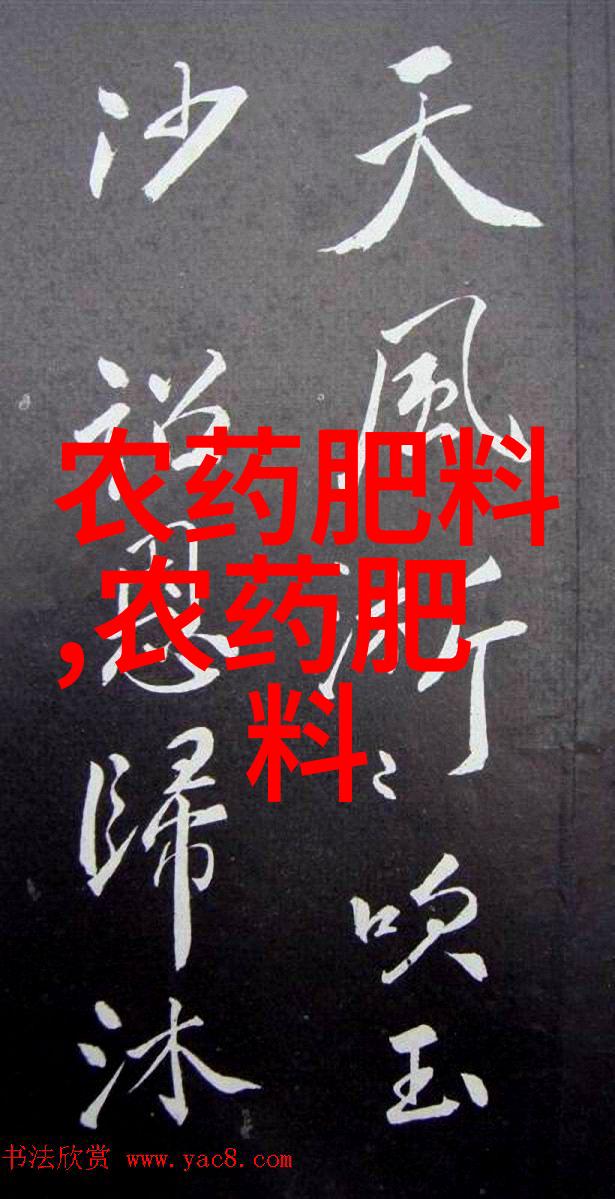 天風淅〻吹玉
沙詔恩歸沐
农药肥料
,农药肥
料
书法欣赏 www.yac8.com